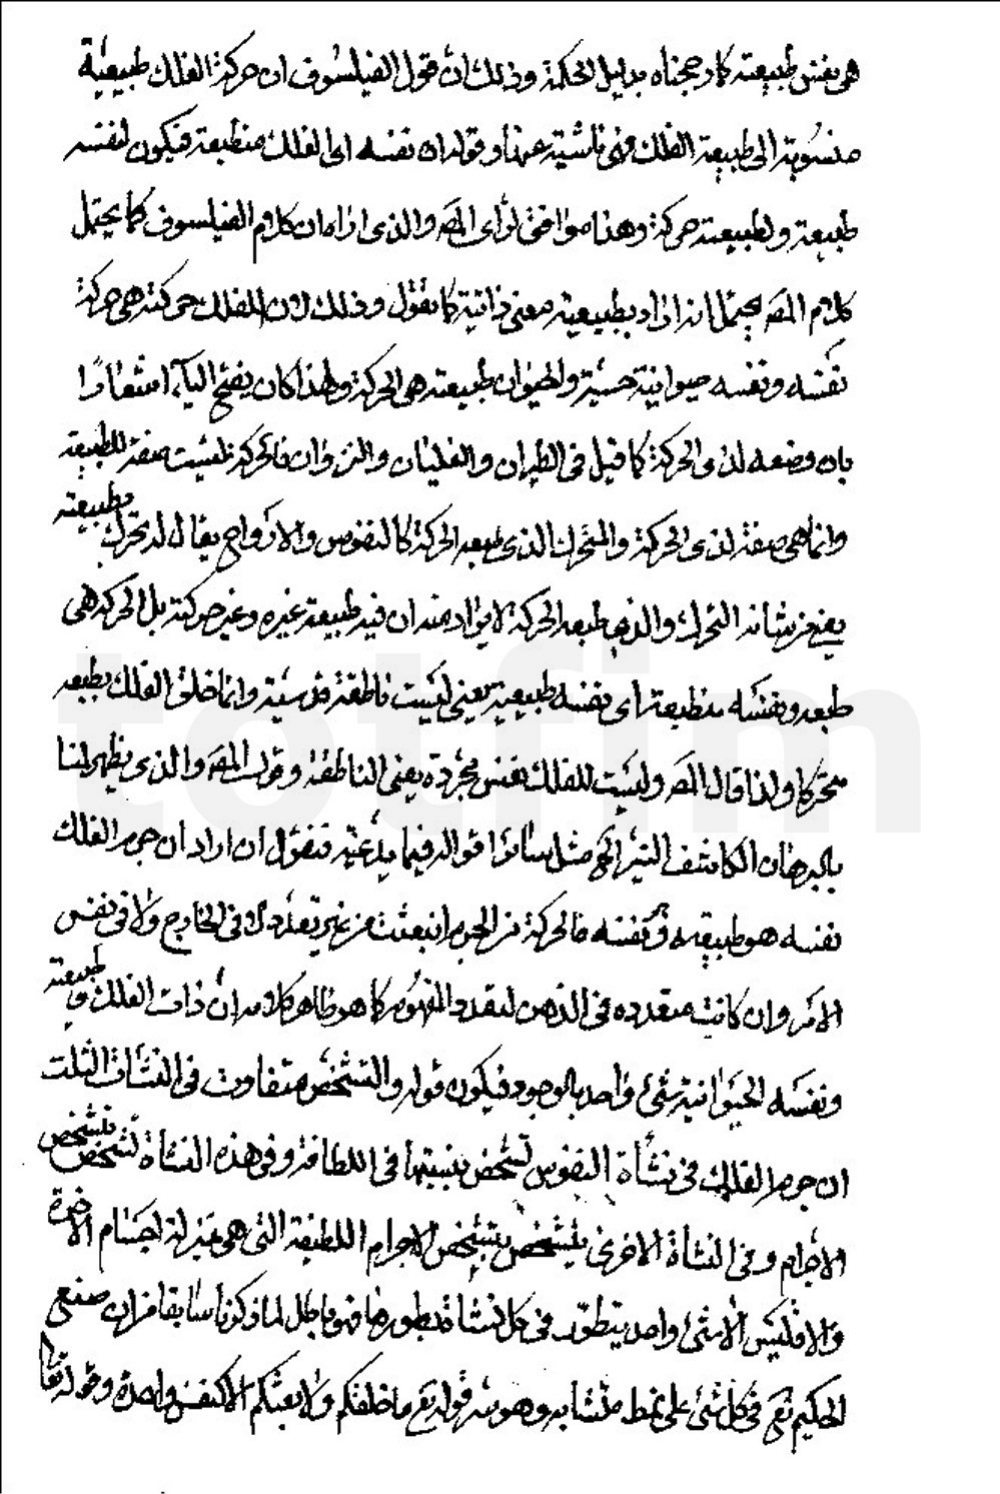 هى نفس طبيعته كما رجحناه بدليل الحكمة وذلك ان قول الفيلسوف ان حركة الفلك طبيعية
منسوبة الى طبيعة الفلك فهى ناشئية عنها وقوله ان نفسه اى الفلك منطبعة فيكون لنفسه
طبيعة ولطبيعته حركة وهذا موافق لرأى المص والذى اراه ان كلام الفيلسوف كما يحتمل
كلام المص يحتمل انه اراد بطبيعية معنى ذاتية كما نقول وذلك لان للفلك حركته هى حركة
نفسه ونفسه حيوانية حسّية والحيوان طبيعته هى الحركة ولهذا كان بفتح الياء اشعارًا
بان وضعه لذى الحركة كما قيل فى الطيران والغليان والنزوان فالحركة ليست صفة للطبيعة
وانما هى صفة لذى الحركة والمتحرك الذى طبعه الحركة كالنفوس والارواح يقال له تحرك بطبيعته
يعنى من شانه التحرك والذى طبعه الحركة لا يراد منه ان فيه طبيعة غيره وغير حركته بل الحركة هى
طبعه ونفسه منطبعة اى نفسه طبيعية بمعنى ليست ناطقة قدسية وانما خلق الفلك بطبعه
متحركا ولذا قال المص وليست للفلك نفس مجردة يعنى الناطقة وقول المص والذى يظهر لنا
بالبرهان الكاشف النيّر الخ مثل سائر اقواله فيما يدعيه فنقول ان اراد ان جرم الفلك
نفسه هو طبيعته ونفسه فالحركة من الجرم انبعثت من غير تعدد لا فى الخارج ولا فى نفس
الامر وان كانت متعدده فى الذهن لتعدد المفهوم كما هو ظاهر كلامه ان ذات الفلك وطبيعته
ونفسه الحيوانية شئ واحد بالوجود فيكون قوله والتشخص متفاوت فى النشأت الثلث
ان جرم الفلك فى نشأة النفوس تشخص بنسبتها فى اللطافة وفى هذه النشأة تشخص بتشخص
الاجرام وفى النشأة الاخرى يتشخص بتشخص الاجرام اللطيفة التى هى بمنزلة اجسام الاخرة
والا فليس الا شئ واحد يتطوّر فى كل نشأة بطورها فهو باطل لما ذكرنا سابقا من ان صنع
الحكيم تع فى كل شئ على نمط متشابه وهو سر قوله تع ما خلقكم ولا بعثكم الا كنفس واحدة وقوله تعا